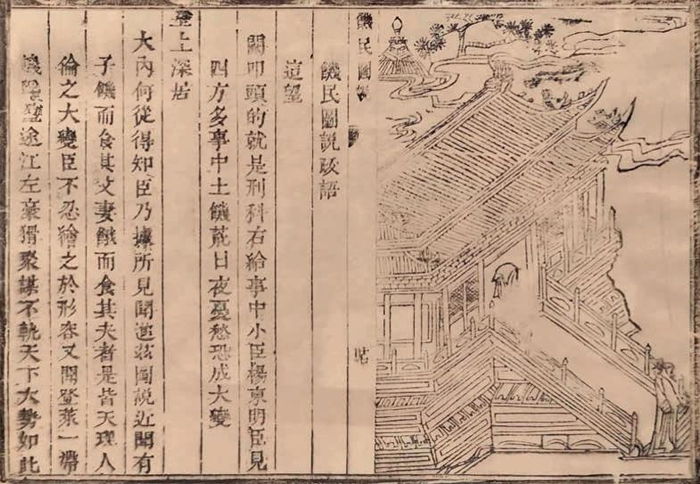 饑民圖說
饑民圖說跋語
這望
闕叩頭的就是刑科右給事中小臣楊東明臣見
四方多事中土饑荒日夜憂愁恐成大變
聖上深居
大內何從得知臣乃據所見聞造茲圖說近聞有
子饑而食其父妻餓而食其夫者是皆天理人
倫之大變臣不忍繪之於形容又聞登萊一帶
途江左豪猾聚謀不軌天下大勢如此